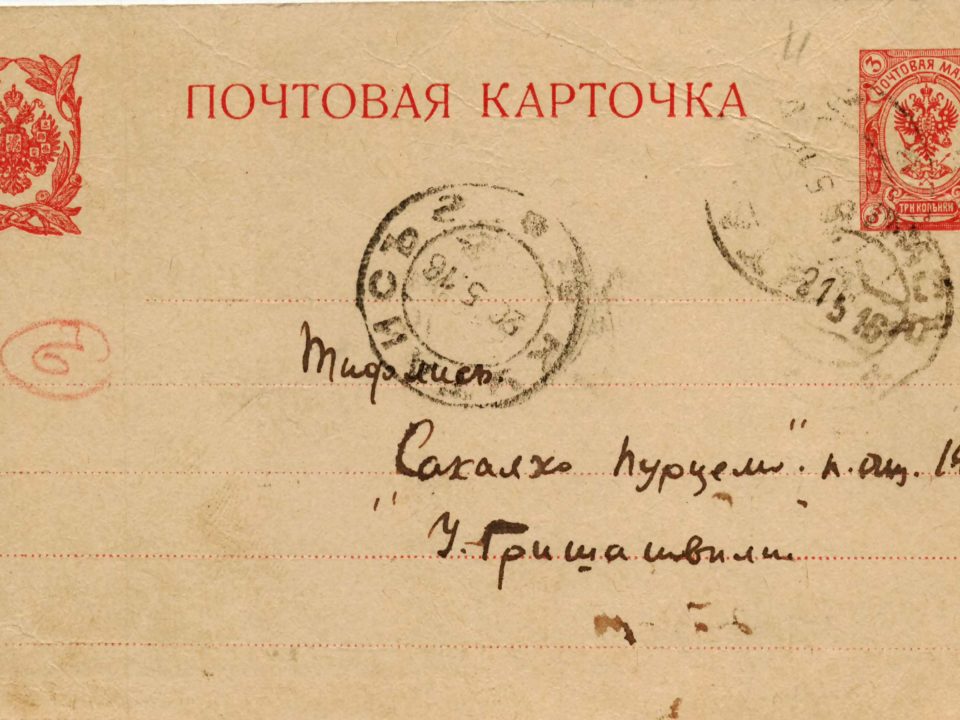 ПОЧТОВАЯ КАРТОЧКА
3
ПОЧТОВАЯ МА
ТРИ КОПѢЙКИ
5.16
21 5 16
Тифлисъ.
"Сахалхо Пурцели".
У. Гришашвили